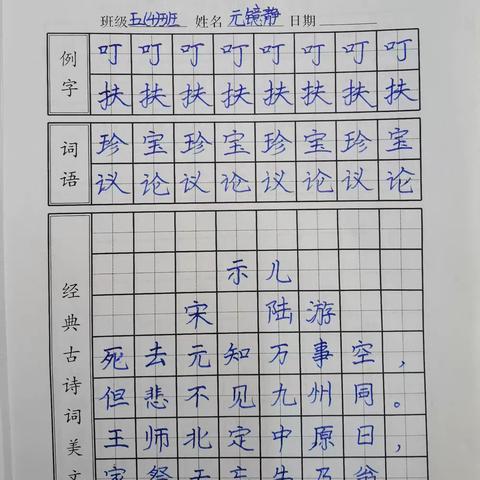 班级 五(4)班 姓名 元镜静 日期
例字
叮叮叮叮叮叮叮叮
扶扶扶扶扶扶扶扶
词语
珍宝珍宝珍宝珍宝
议论议论议论议论
经典古诗词美文
示儿
宋 陆游
死去元知万事空，
但悲不见九州同。
王师北定中原日，
家祭无忘告乃翁